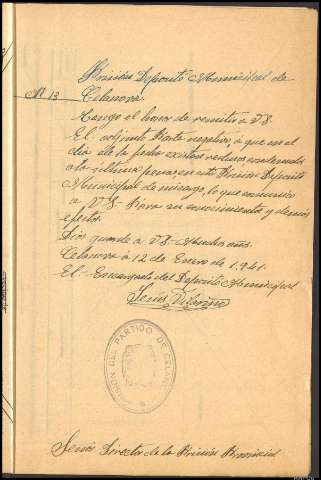 Prision Deposito Municipal de
Nº 13 Celanova.
Tengo el honor de remitir a VS
El adjunto Parte negativo, á que en el
dia de la fecha existen reclusos condenados
a la ultima pena, en este Deposito
Municipal de mi cargo, lo que comunico
a VS. Para su conocimiento y demás
efectos.
Dios guarde a VS. Muchos años.
Celanova á 12 de Enero de 1.941.
El Encargado del Deposito Municipal
PRISION DEL PARTIDO DE CELANOVA
Señor Director de la Prision Provincial